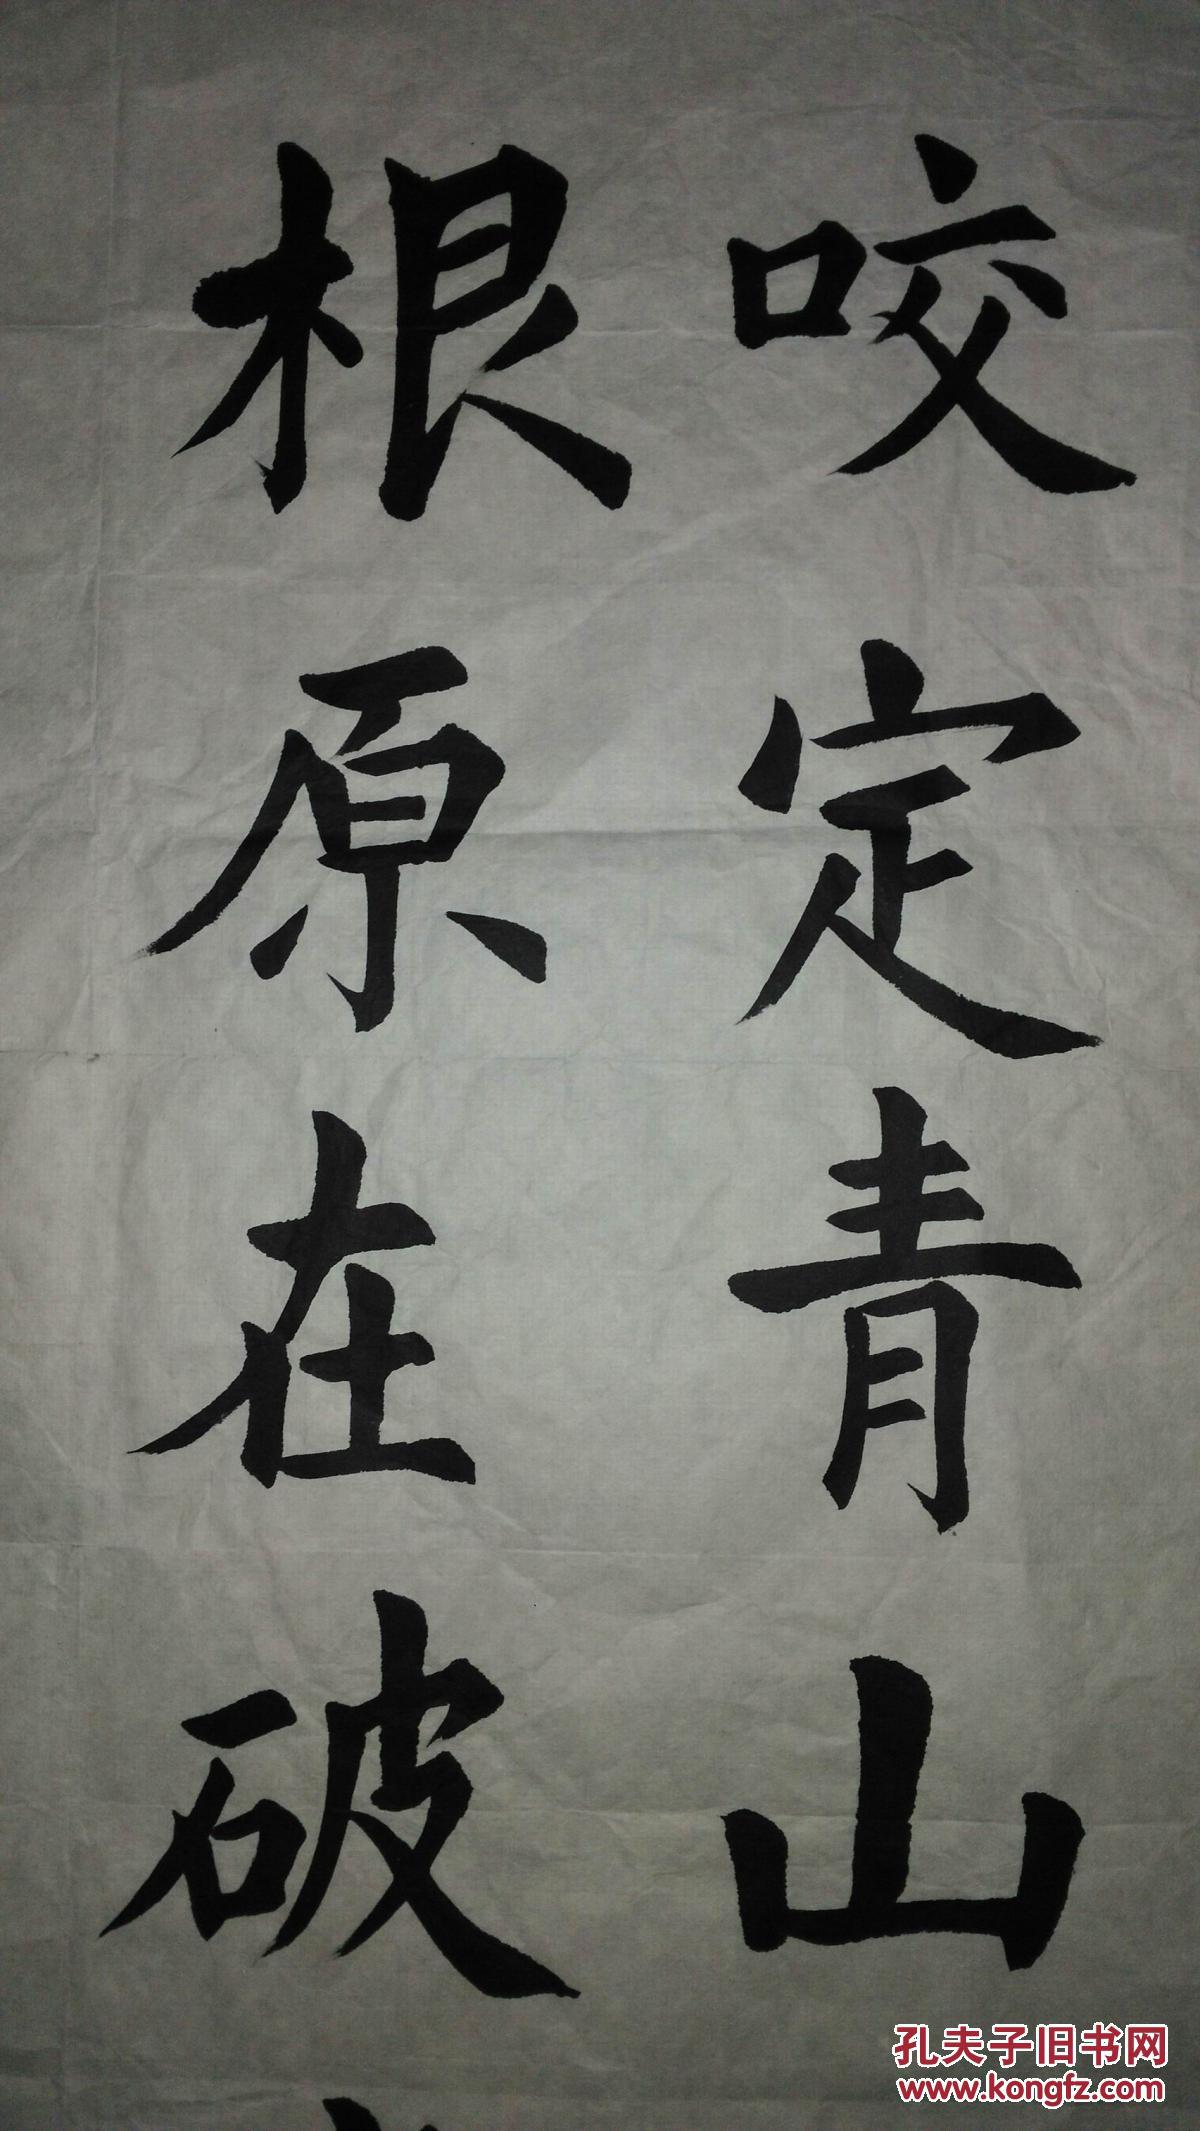 咬定青山
根原在破
孔夫子旧书网
www.kongfz.com